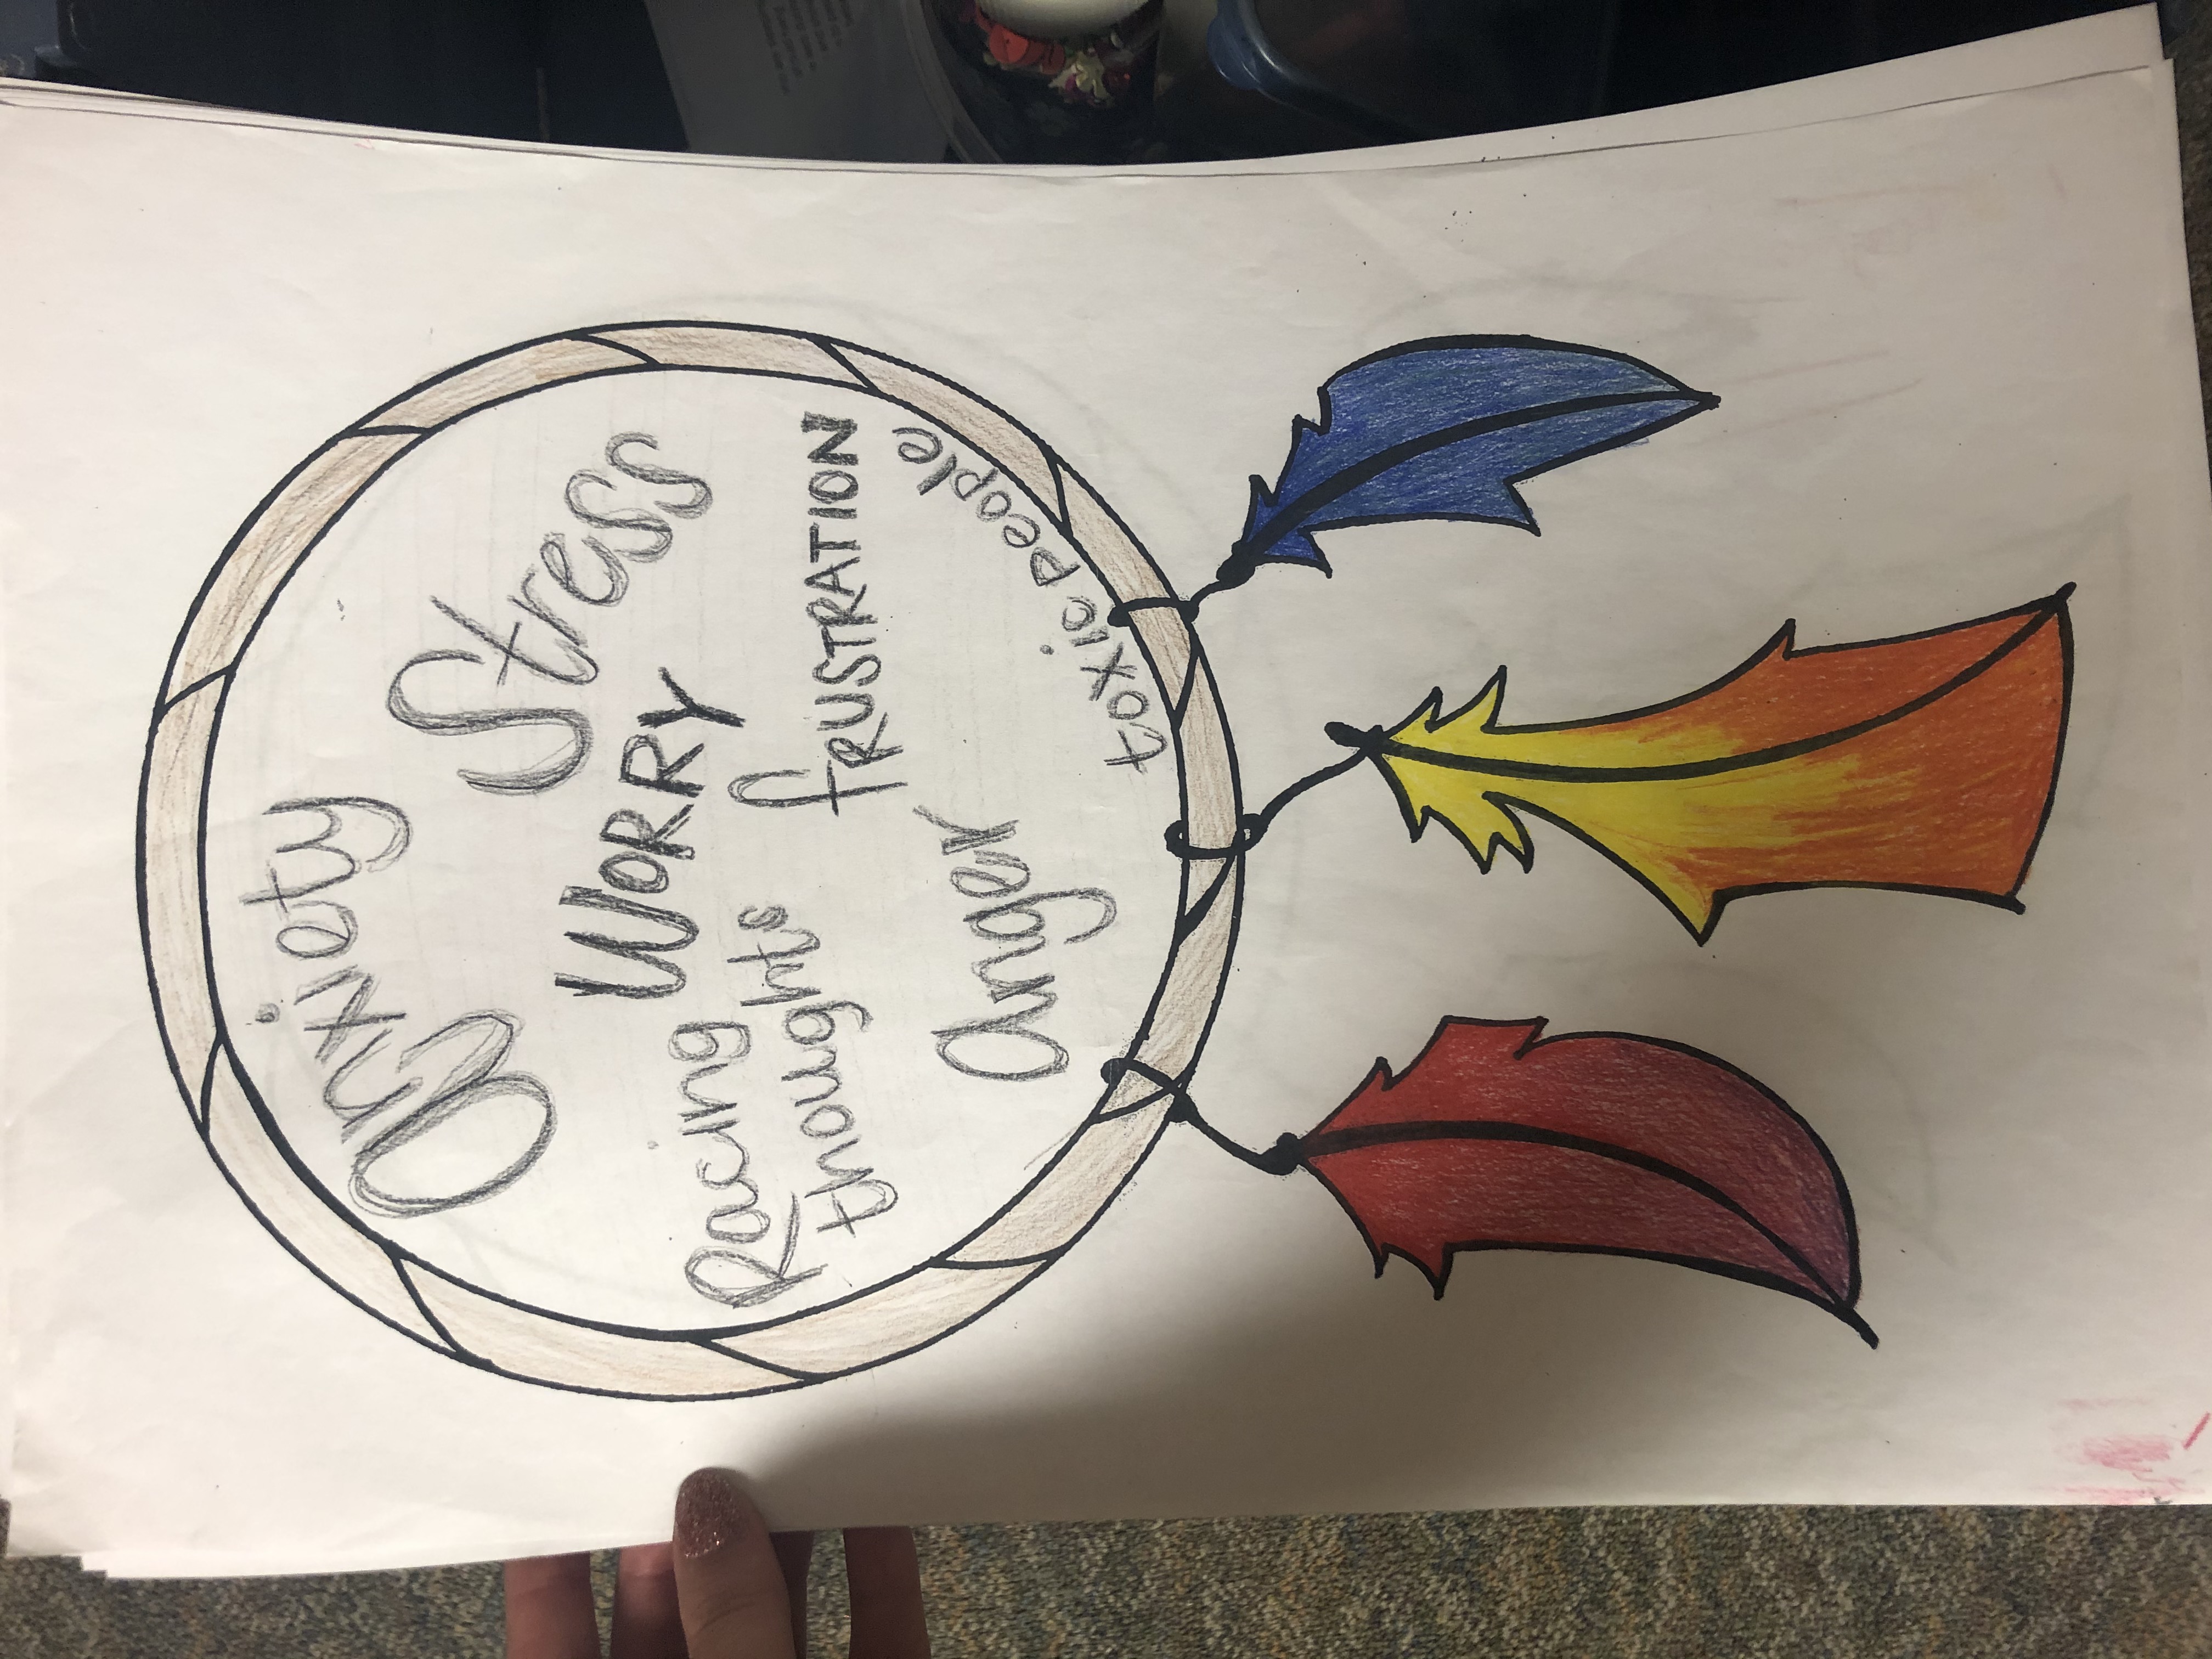 anxiety
Stress
WORRY
Racing
thoughts
fRUSTRATION
Anger
toxic people